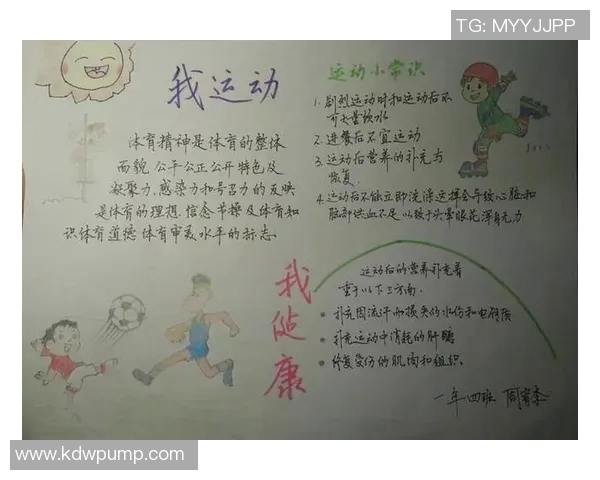 TG: MYYJJPP
我运动
体育精神是体育的整体
面貌 公平公正公开特色及
凝聚力.感染力和号召力的反映
是体育的理想.信念 节操及体育知
识体育道德 体育审美水平的标志.
运动小常识
1.剧烈运动时和运动后不
可大量饮水
2.进餐后不宜运动
3.运动后营养的补充与
恢复.
4.运动后不能立即洗澡这样会导致心脏和
脑部供血不足 以致于头晕眼花 浑身无力
我健康
运动后的营养补充着
重于以下三方面.
补充因流汗而损失的水份和电解质
补充运动中消耗的肝醣
修复受伤的肌肉和组织.
一年四班 周
www.kdwpump.com